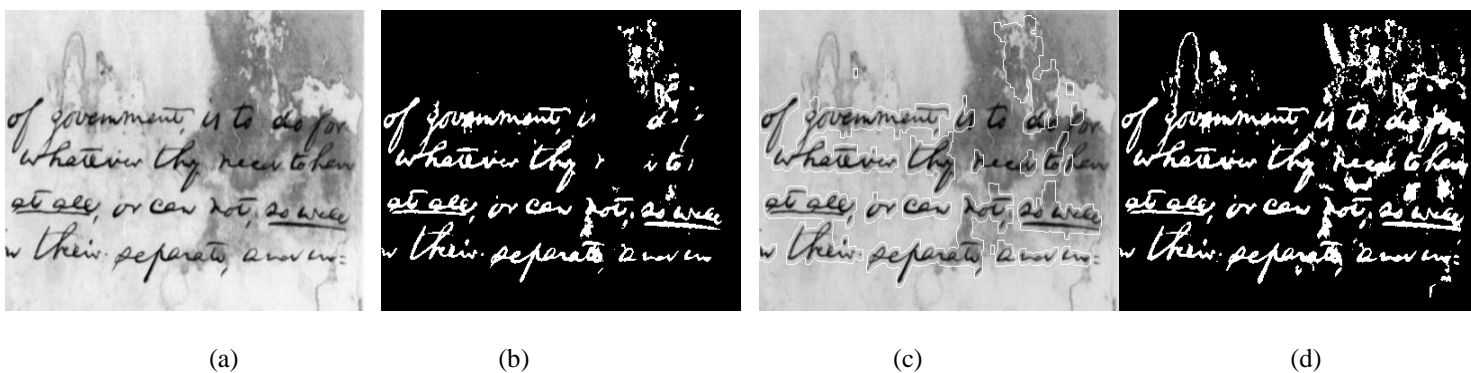 of government, is to do for
whatever they need to have
at all, or can not, so well
n their separate, and in=
(a)
of government, is
whatever they
at all, or can not, so well
n their separate, and in
(b)
of government, is to do for
whatever they need to have
at all, or can not, so well
n their separate, and in=
(c)
of government, is to do for
whatever they need to have
at all, or can not, so well
n their separate, and in=
(d)